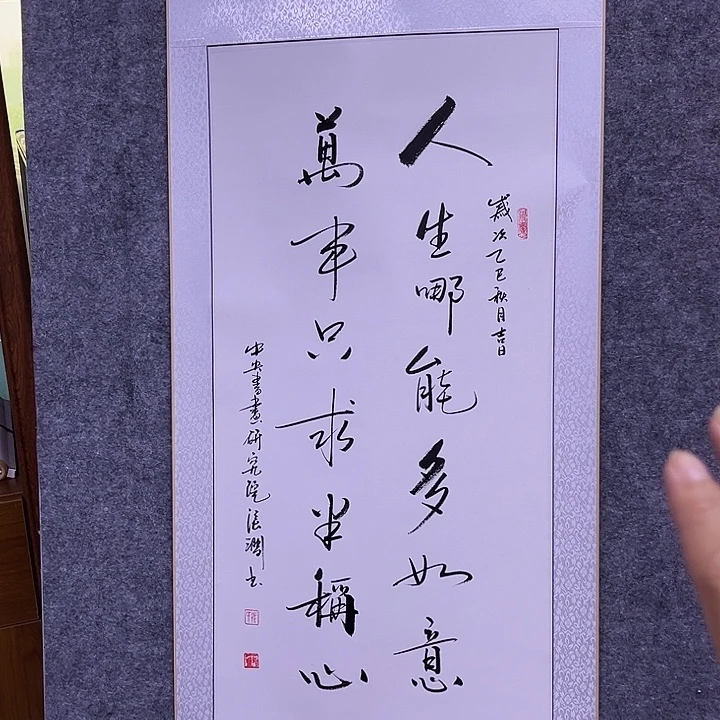 歲次乙巳秋月吉日
人生哪能多如意
萬事只求半稱心
中央書畫研究院張潤书